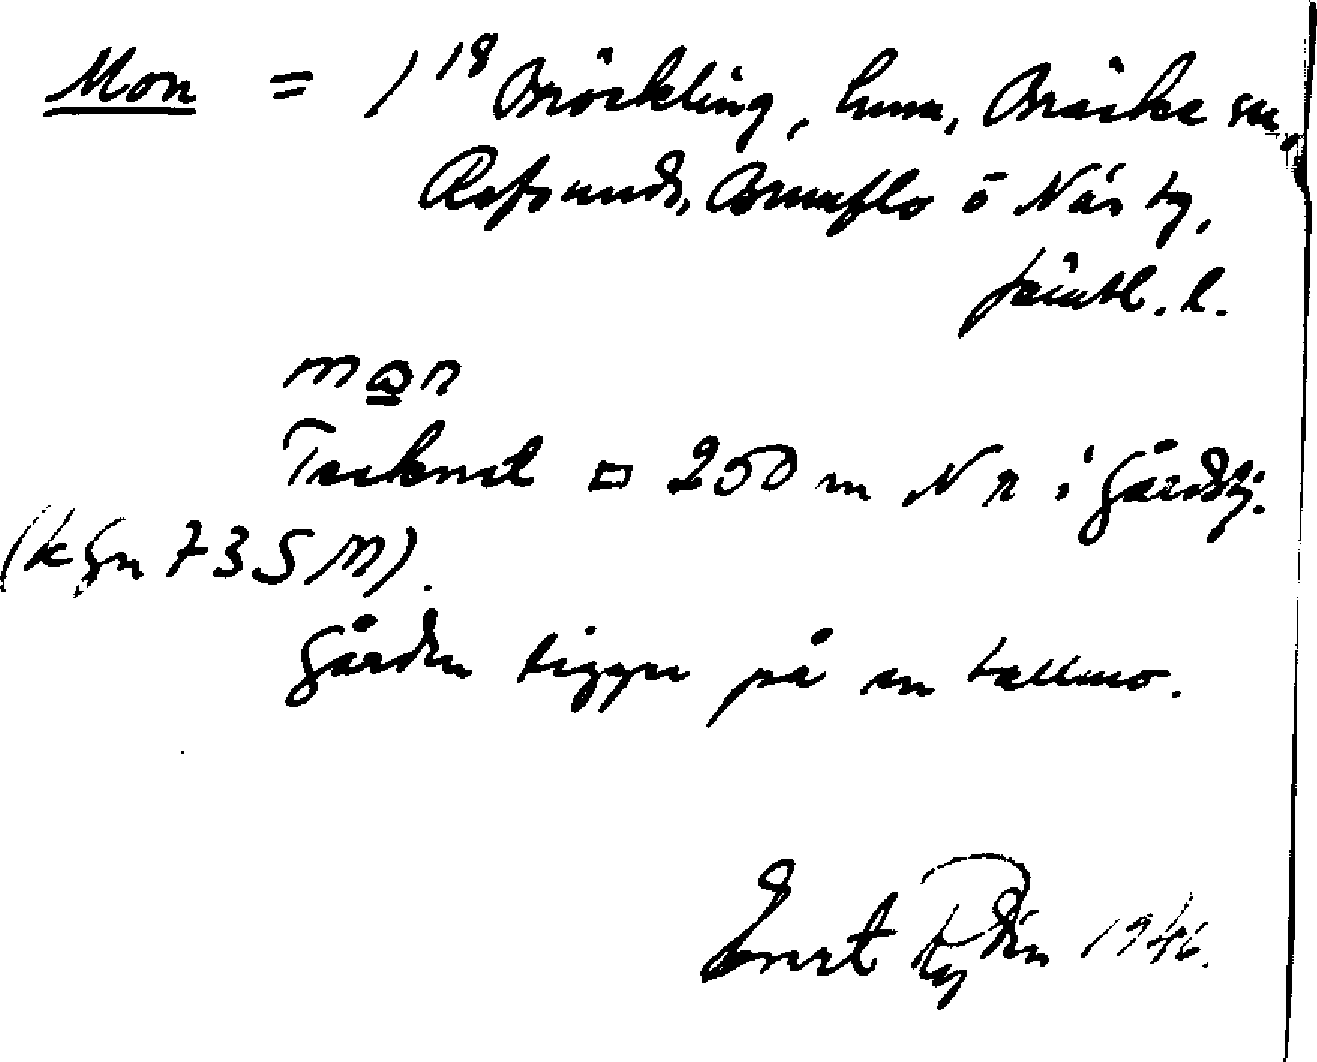 Mon = 1¹⁸ Bröckling, hmn, Bräcke sn,
Refsunds, Brunflo o Näs tg,
Jämtl. l.
mꜵn
Tecknet □ 250 m N n i Gårdstj.
(k Gn 73 5 M).
Gården ligger på en tallmo.
Ernst Rydén 1946.